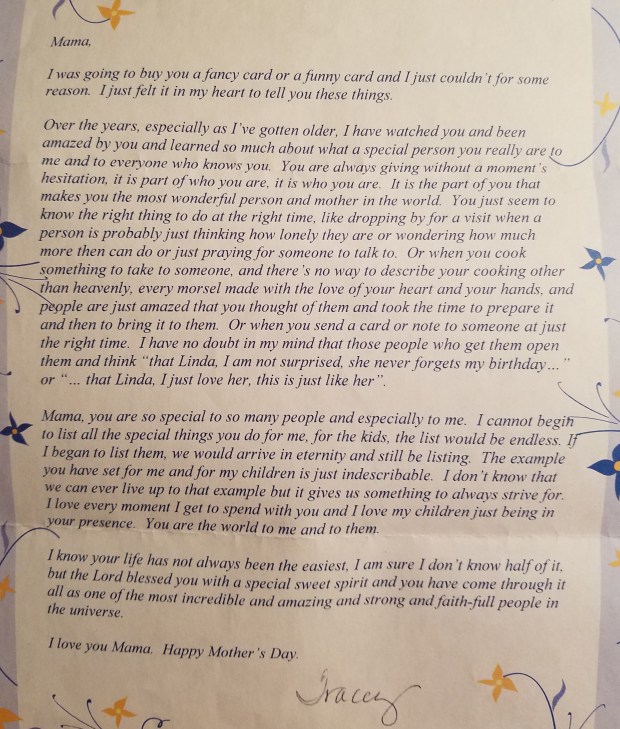 Mama,
I was going to buy you a fancy card or a funny card and I just couldn't for some
reason. I just felt it in my heart to tell you these things.
Over the years, especially as I've gotten older, I have watched you and been
amazed by you and learned so much about what a special person you really are to
me and to everyone who knows you. You are always giving without a moment's
hesitation, it is part of who you are, it is who you are. It is the part of you that
makes you the most wonderful person and mother in the world. You just seem to
know the right thing to do at the right time, like dropping by for a visit when a
person is probably just thinking how lonely they are or wondering how much
more then can do or just praying for someone to talk to. Or when you cook
something to take to someone, and there's no way to describe your cooking other
than heavenly, every morsel made with the love of your heart and your hands, and
people are just amazed that you thought of them and took the time to prepare it
and then to bring it to them. Or when you send a card or note to someone at just
the right time. I have no doubt in my mind that those people who get them open
them and think "that Linda, I am not surprised, she never forgets my birthday…"
or "… that Linda, I just love her, this is just like her".
Mama, you are so special to so many people and especially to me. I cannot begin
to list all the special things you do for me, for the kids, the list would be endless. If
I began to list them, we would arrive in eternity and still be listing. The example
you have set for me and for my children is just indescribable. I don't know that
we can ever live up to that example but it gives us something to always strive for.
I love every moment I get to spend with you and I love my children just being in
your presence. You are the world to me and to them.
I know your life has not always been the easiest, I am sure I don't know half of it,
but the Lord blessed you with a special sweet spirit and you have come through it
all as one of the most incredible and amazing and strong and faith-full people in
the universe.
I love you Mama. Happy Mother's Day.
Tracey